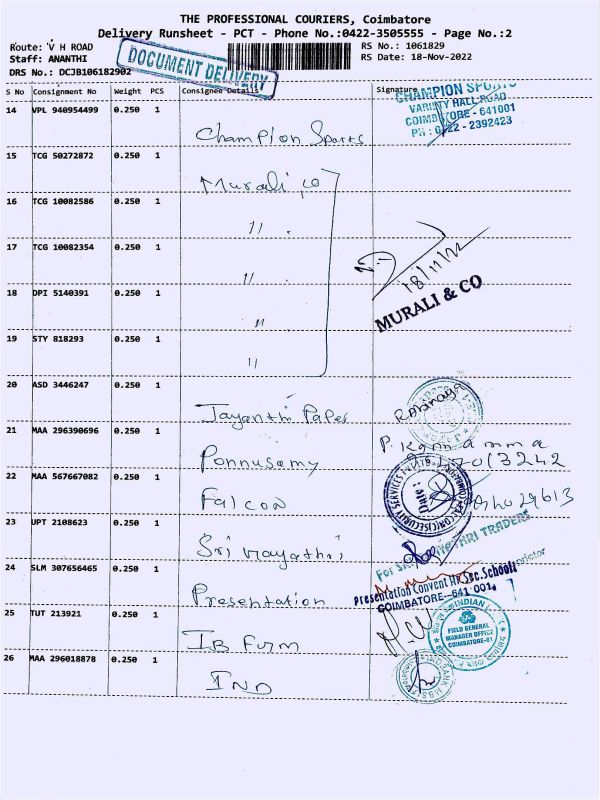 THE PROFESSIONAL COURIERS, Coimbatore
Delivery Runsheet - PCT - Phone No.:0422-3505555 - Page No.:2
Route: V H ROAD
RS No.: 1061829
Staff: ANANTHI
RS Date: 18-Nov-2022
DRS No.: DCJB106182902
DOCUMENT DELIVERY
S No Consignment No Weight PCS Consignee Details Signature
CHAMPION SPORTS
VARIETY HALL ROAD
COIMBATORE - 641001
PH : 0422 - 2392423
14 VPL 940954499 0.250 1
Champion Sports
15 TCG 50272872 0.250 1
Murali, co
16 TCG 10082586 0.250 1
"
17 TCG 10082354 0.250 1
"
18/11/22
MURALI & CO
18 DPI 5140391 0.250 1
"
19 STY 818293 0.250 1
"
20 ASD 3446247 0.250 1
Jayanthi Paper
21 MAA 296390696 0.250 1
Ponnusamy
22 MAA 567667082 0.250 1
Falcon
23 UPT 2108623 0.250 1
24 SLM 307656465 0.250 1
Presentation
Presentation Convent Hr.Sec.School
COIMBATORE-641 001.
25 TUT 213921 0.250 1
IB Furm
FIELD GENERAL
MANAGER OFFICE
COIMBATORE-01
26 MAA 296018878 0.250 1
IND